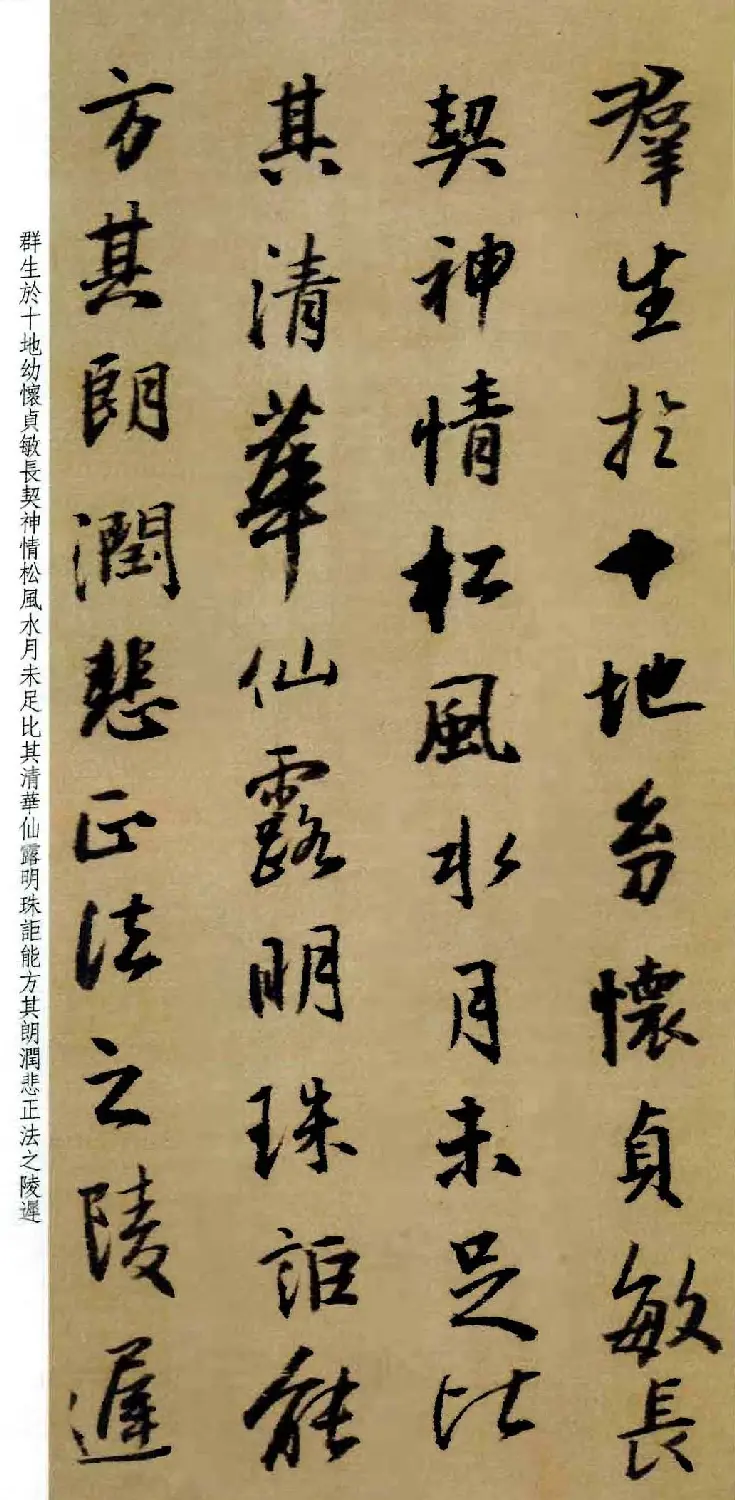 羣生於十地幼懷貞敏長
契神情松風水月未足比
其清華仙露明珠詎能
方其朗潤悲正法之陵遲
群生於十地幼懷貞敏長契神情松風水月未足比其清華仙露明珠詎能方其朗潤悲正法之陵遲